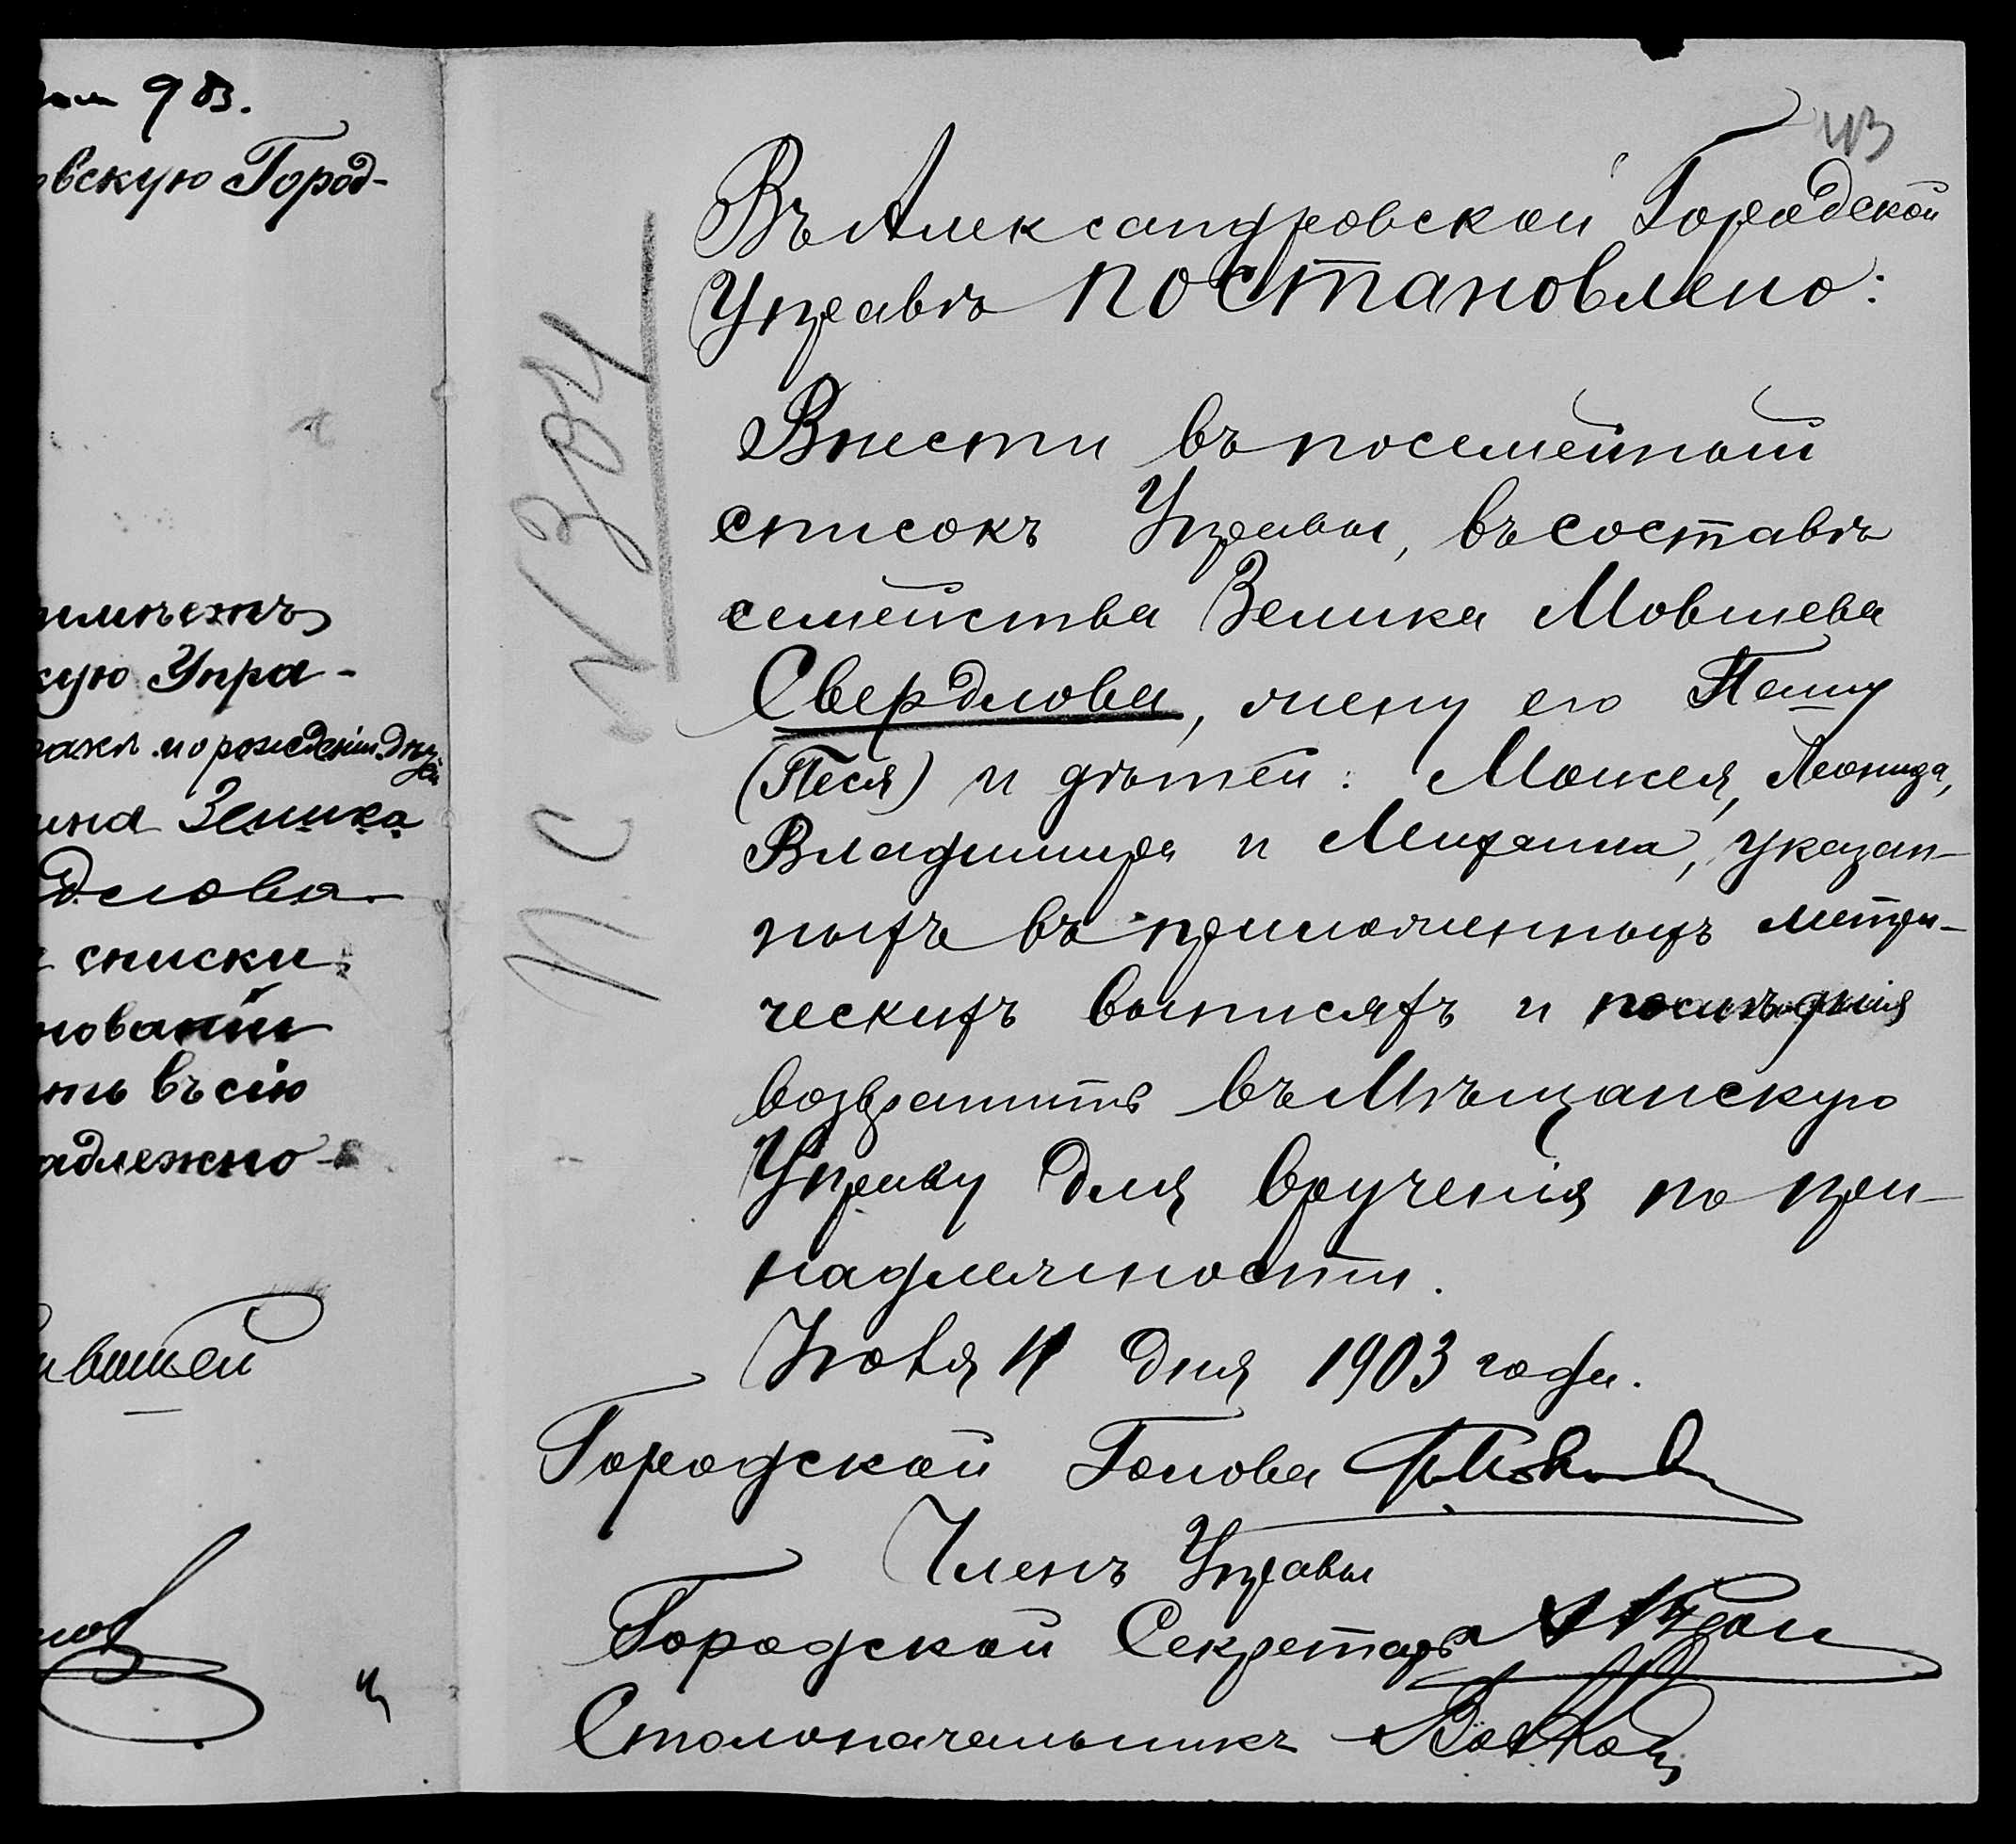 903.
вскую Город-
кую Упра-
о рожденіи дѣтей
ина Зелика
длова
списки
нованіи
ть въ сію
адлежно-
43
П С № 304
Въ Александровской Городской
Управѣ постановлено:
Внести въ посемейный
списокъ Управы, въ составъ
семейства Зелика Мовшева
Свердлова, жену его Пешу
(Песя) и дѣтей: Моисея, Леонида,
Владимира и Михаила, указан-
ныхъ въ приложенныхъ метри-
ческихъ выписяхъ и послѣднія
возвратить въ Мѣщанскую
Управу для врученія по при-
надлежности.
11 дня 1903 года.
Городской Голова
Членъ Управы
Городской Секретарь
Столоначальникъ